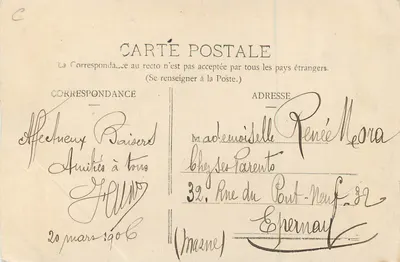 C
CARTE POSTALE
La Correspondance au recto n'est pas acceptée par tous les pays étrangers.
(Se renseigner à la Poste.)
CORRESPONDANCE
Affectueux Baisers
Amitiés à tous
20 mars 1906
ADRESSE
mademoiselle Renée Mora
Chez ses Parents
32. Rue du Pont-Neuf-32
Epernay
(Marne)